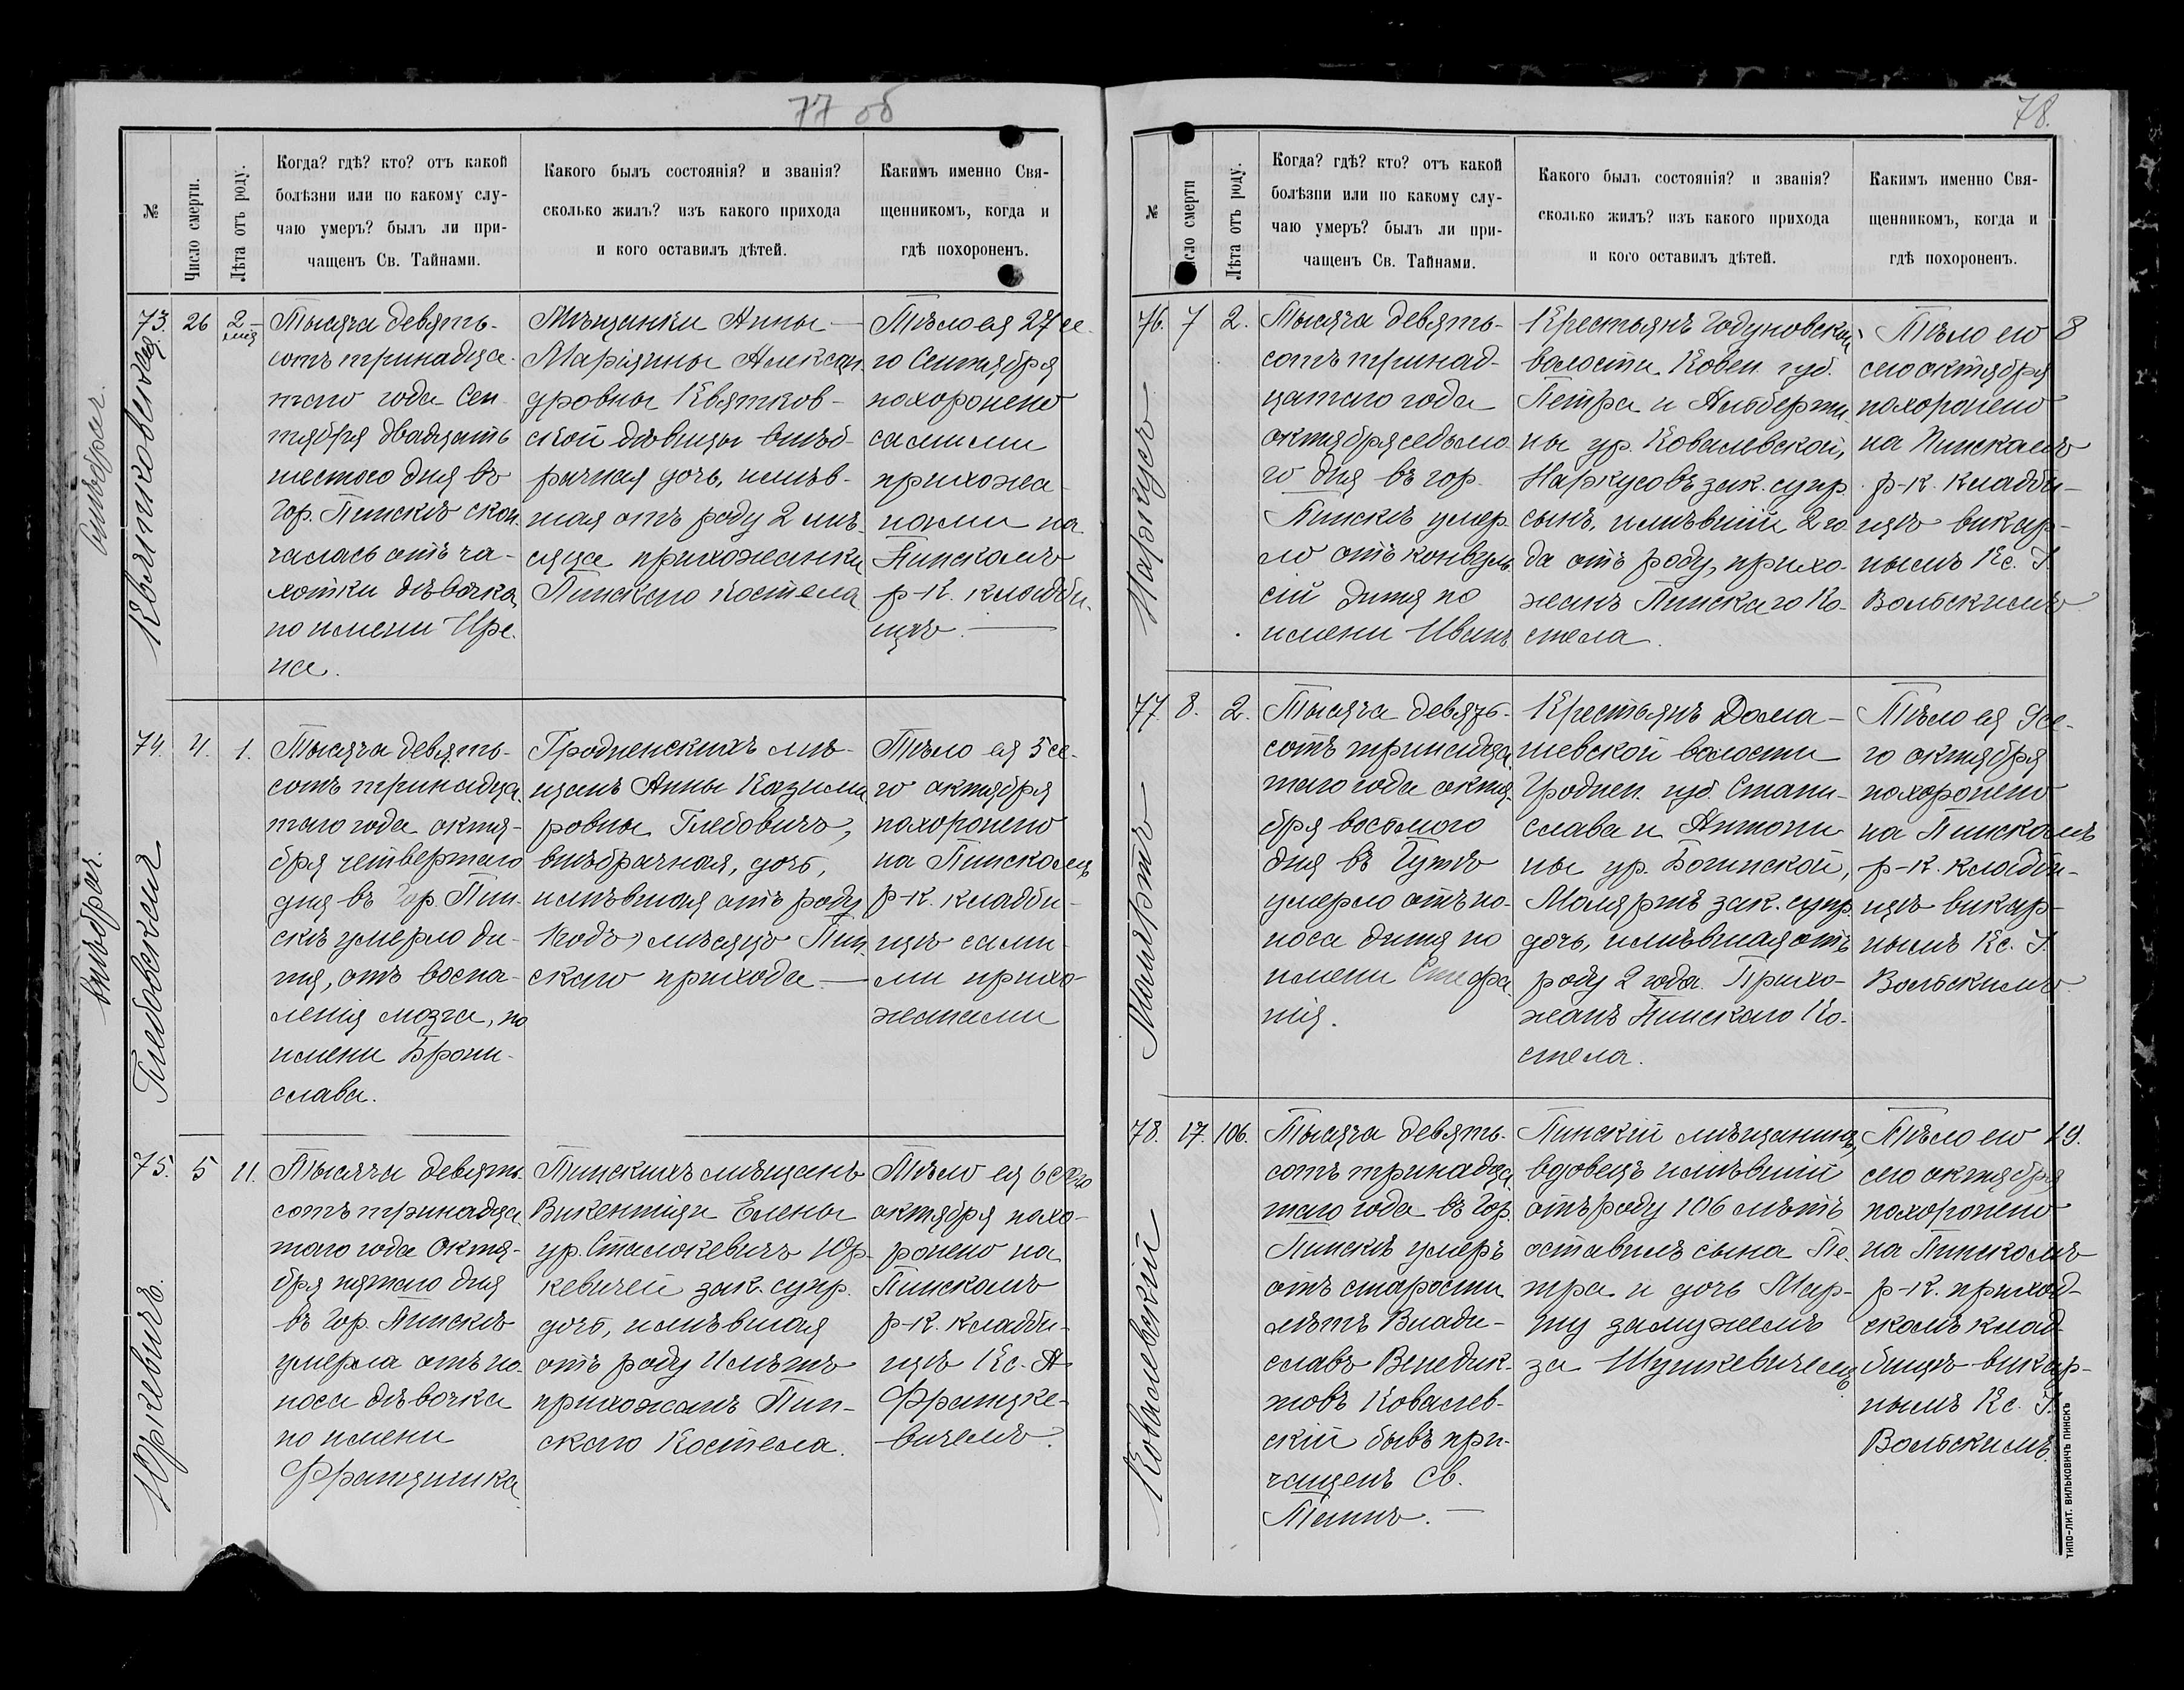 77 об
№
Число смерти.
Лѣта отъ роду.
Когда? гдѣ? кто? отъ какой
болѣзни или по какому слу-
чаю умеръ? былъ ли при-
чащенъ Св. Тайнами.
Какого былъ состоянія? и званія?
сколько жилъ? изъ какого прихода
и кого оставилъ дѣтей.
Какимъ именно Свя-
щенникомъ, когда и
гдѣ похороненъ.
внѣбрач.
Квятковская
73. 26 2 мця
Тысяча девять-
сотъ тринадца-
таго года Сен-
тября двадцать
шестого дня въ
Гор. Пинскѣ скон-
чалась отъ ча-
хотки дѣвочка
по имени Ире-
на.
Мѣщанки Анны —
Маріянны Алексан-
дровны Квятков-
ской дѣвицы внѣб-
рачная дочь, имѣв-
шая отъ роду 2 мѣ-
сяца прихожанки
Пинскаго Костела
Тѣло ея 27 се-
го Сентября
похоронено
самими
прихожа-
нами на
Пинскомъ
р-к. кладби-
щѣ. —
внѣбрач.
Глебовская
74. 4. 1.
Тысяча девять-
сотъ тринадца-
таго года октя-
бря четвертаго
дня въ Гор. Пин-
скѣ умерло ди-
тя, отъ воспа-
ленія мозга, по
имени Брони-
слава.
Гродненскихъ мѣ-
щанъ Анны Казими-
ровны Глебовичъ,
внѣбрачная, дочь,
имѣвшая отъ роду
1 годъ, мѣсяцъ Пин-
скаго прихода —
Тѣло ея 5 се-
го октября
похоронено
на Пинскомъ
р-к. кладби-
щѣ сами-
ми прихо-
жанами
Юркевичъ.
75. 5 11.
Тысяча девять-
сотъ тринадца-
таго года Октя-
бря пятаго дня
въ Гор. Пинскѣ
умерла отъ по-
носа дѣвочка
по имени
Францишка
Пинскихъ мѣщанъ
Викентія и Елены
ур. Стасюкевичъ Юр-
кевичей зак. супр.
дочь, имѣвшая
отъ роду 11 лѣтъ
прихожанъ Пин-
скаго Костела.
Тѣло ея 6 сего
октября похо-
ронено на
Пинскомъ
р-к. кладби-
щѣ Кс. А
Францке-
вичемъ.
78.
№
Число смерти
Лѣта отъ роду.
Когда? гдѣ? кто? отъ какой
болѣзни или по какому слу-
чаю умеръ? былъ ли при-
чащенъ Св. Тайнами.
Какого былъ состоянія? и званія?
сколько жилъ? изъ какого прихода
и кого оставилъ дѣтей.
Какимъ именно Свя-
щенникомъ, когда и
гдѣ похороненъ.
Наркусъ
76. 7 2.
Тысяча девять-
сотъ тринад-
цатаго года
октября седьмо-
го дня въ гор.
Пинскѣ умер-
ло отъ конвуль-
сій дитя по
имени Иванъ
Крестьянъ Годуновской
волости Ковен. губ.
Петра и Альберти-
ны ур. Ковалевской,
Наркусовъ зак. супр.
сынъ, имѣвшій 2 го-
да отъ роду, прихо-
жанъ Пинскаго Ко-
стела.
Тѣло его 8
сего октября
похоронено
на Пинскомъ
р-к. кладби-
щѣ викар-
нымъ Кс. I.
Вольскимъ
Молярть
77. 8. 2.
Тысяча девять-
сотъ тринадца-
таго года октя-
бря восьмого
дня въ Гутѣ
умерло отъ по-
носа дитя по
имени Стефа-
нія.
Крестьянъ Дома-
чевской волости
Гроднен. губ Стани-
слава и Антони-
ны ур. Богинской,
Молярть зак. супр.
дочь, имѣвшая отъ
роду 2 года. Прихо-
жанъ Пинскаго Ко-
стела.
Тѣло ея 9 се-
го октября
похоронено
на Пинскомъ
р-к. кладби-
щѣ викар-
нымъ Кс. I.
Вольскимъ
Ковалевскій
78. 17. 106.
Тысяча девять-
сотъ тринадца-
таго года въ Гор.
Пинскѣ умеръ
отъ старости
лѣтъ Влади-
славъ Венедик-
товъ Ковалев-
скій бывъ при-
чащенъ Св.
Таинъ. —
Пинскій мѣщанинъ,
вдовецъ имѣвшій
отъ роду 106 лѣтъ
оставилъ сына Пе-
тра и дочь Мар-
ту замужемъ
за Шушкевичемъ
Тѣло его 19.
сего октября
похоронено
на Пинскомъ
р-к. приход-
скомъ клад-
бищѣ викар-
нымъ Кс. I.
Вольскимъ.
ТИПО-ЛИТ. ВИЛЬКОВИЧЪ ПИНСКЪ